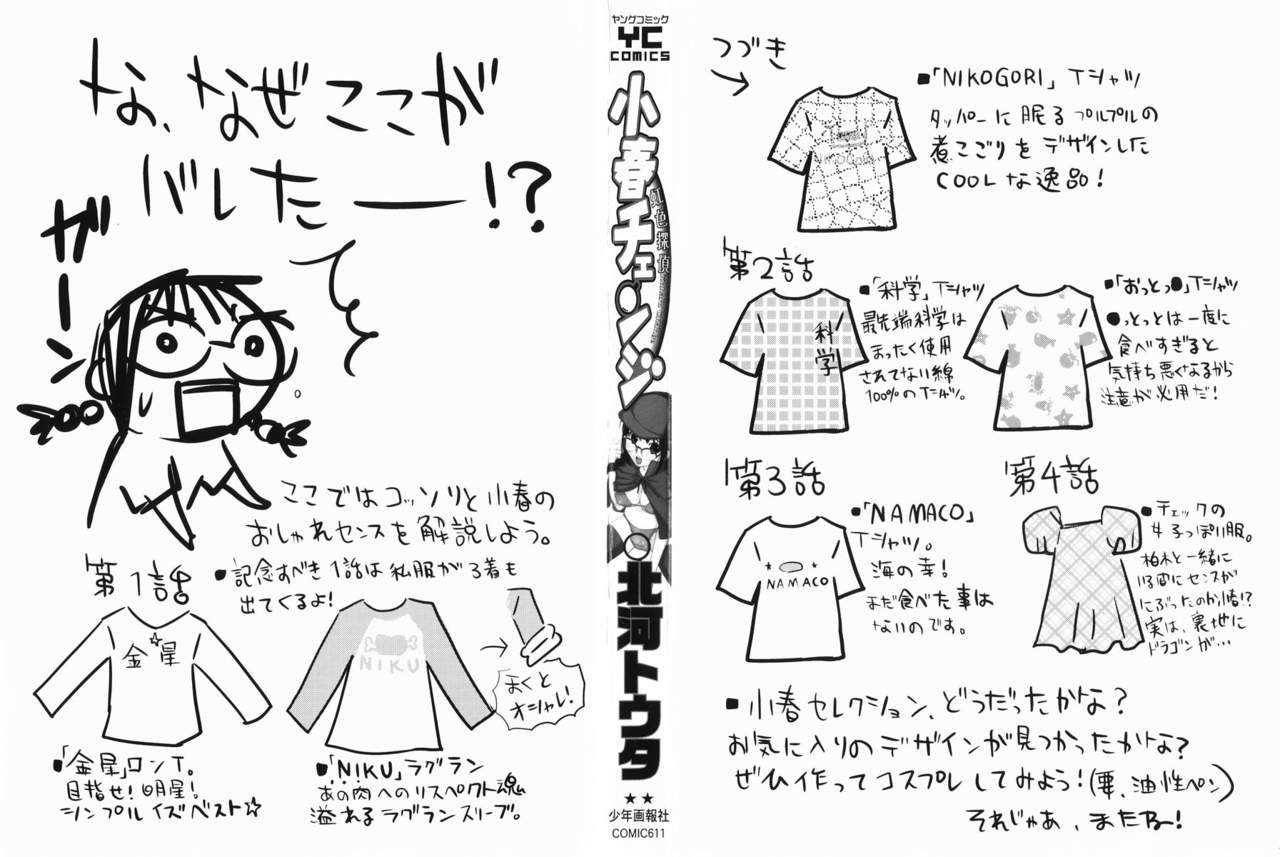 な、なぜここが
バレたー!?
ガーン
ここではコッソリと小春の
おしゃれセンスを解説しよう。
第1話
■記念すべき1話は私服が3着も
出てくるよ!
金☆星
■「金星」ロンT。
目指せ!明星!
シンプルイズベスト☆
NIKU
■「NIKU」ラグラン
あの肉へのリスペクト魂
溢れるラグランスリーブ。
まくと
オシャレ!
ヤングコミック
YC
COMICS
小春チェンジ
虹色探偵
北河トウタ
★★
少年画報社
COMIC611
つづき
NIKOGORI
■「NIKOGORI」Tシャツ
タッパーに眠るプルプルの
煮こごりをデザインした
COOLな逸品!
第2話
科学
■「科学」Tシャツ
最先端科学は
まったく使用
されてない綿
100%のTシャツ。
■「おっとっ●」Tシャツ
●っとっとは一度に
食べすぎると
気持ち悪くなるから
注意が必用だ!
第3話
NAMACO
■「NAMACO」
Tシャツ。
海の幸!
まだ食べた事は
ないのです。
第4話
■チェックの
女子っぽい服。
柏木と一緒に
いる間にセンスが
にぶったのか小春!?
実は、裏地に
ドラゴンが…
■小春セレクション、どうだったかな?
お気に入りのデザインが見つかったかな?
ぜひ作ってコスプレしてみよう!(要、油性ペン)
それじゃあ、またねー!